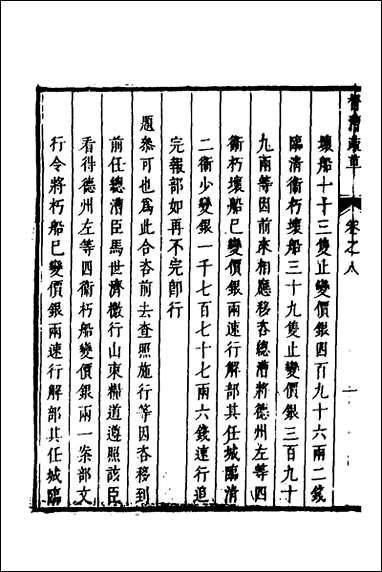 督漕疏草
卷之八
一
壞船十十三隻止變價銀四百九十六兩二錢
臨清衛朽壞船三十九隻止變價銀三百九十
九兩等因前來相應移咨總漕將德州左等四
衛朽壞船已變價銀兩速行解部其任城臨清
二衛少變銀一千七百七十七兩六錢速行追
完報部如再不完卽行
題叅可也爲此合咨前去查照施行等因咨移到
前任總漕臣馬世濟檄行山東糧道遵照該臣
看得德州左等四衛朽船變價銀兩一案部文
行令將朽船已變價銀兩速行解部其任城臨